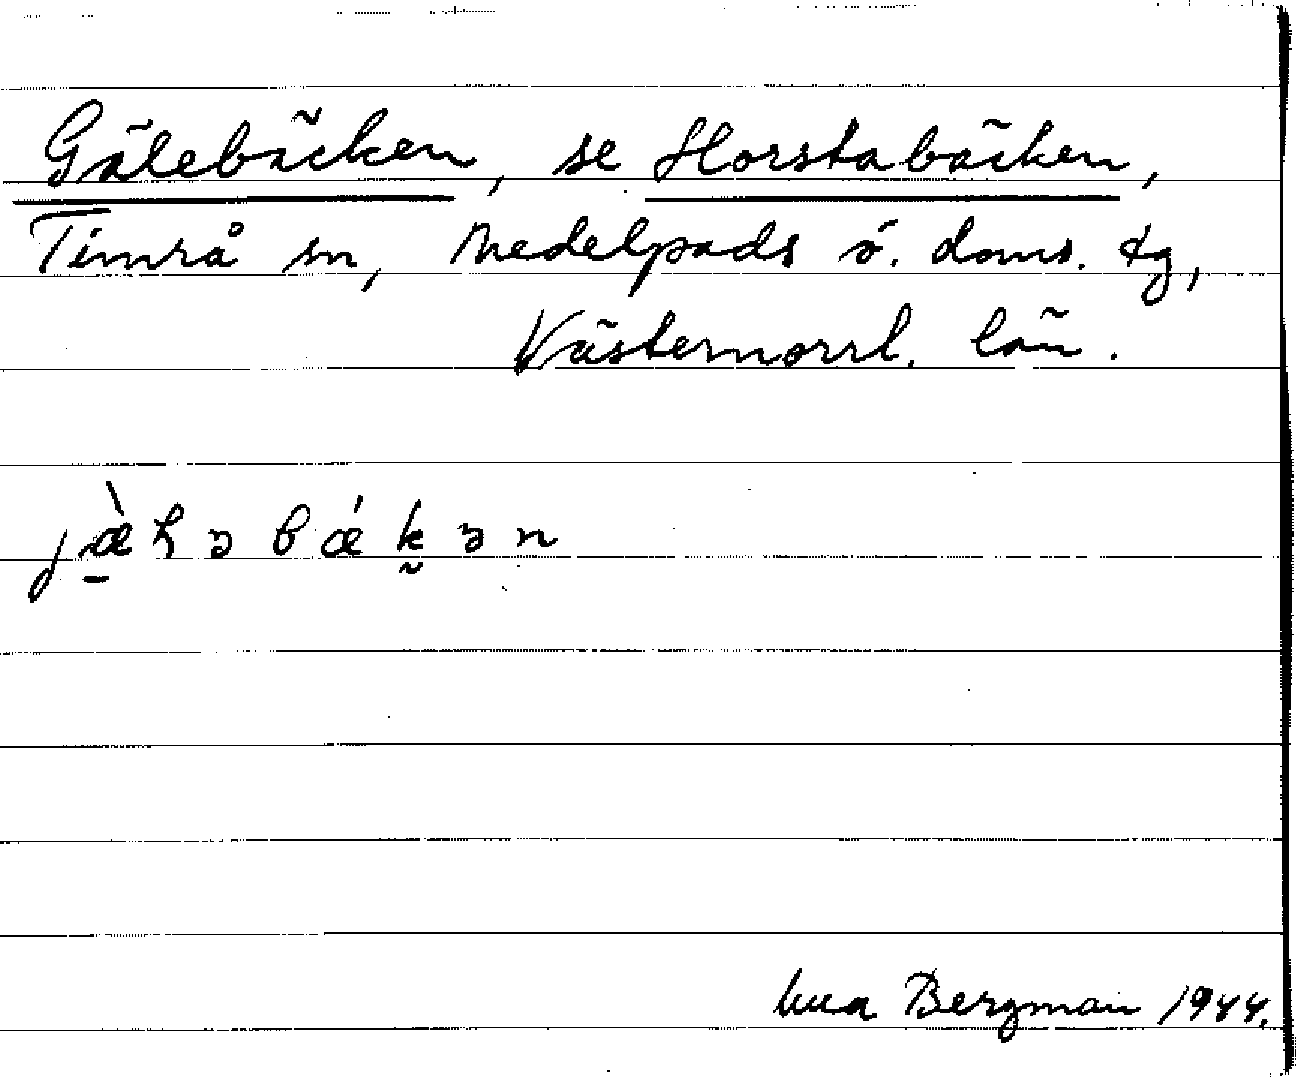 Gälebäcken, se Horstabäcken,
Timrå sn, Medelpads ö. doms. tg,
Västernorrl. län.
jæ̀ɽəbǽkən
Bergman 1944.